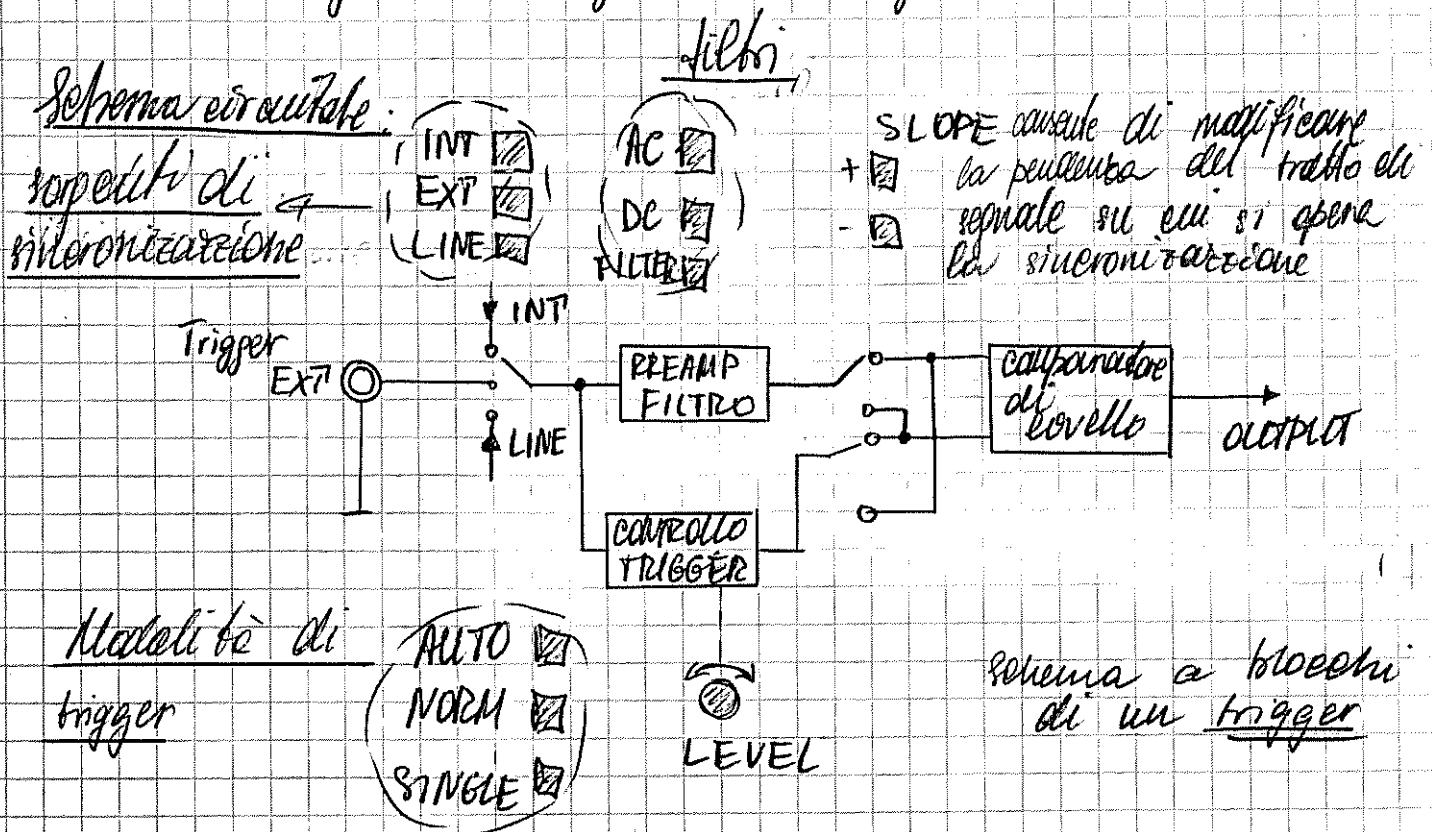 filtri
Schema circuitale:
sorgenti di
sincronizzazione
INT
EXT
LINE
AC
DC
FILTER
SLOPE consente di modificare
+ la pendenza del tratto di
- segnale su cui si opera
la sincronizzazione
INT
Trigger
EXT
LINE
PREAMP
FILTRO
comparatore
di
livello
OUTPUT
CONTROLLO
TRIGGER
Modalità di
trigger
AUTO
NORM
SINGLE
LEVEL
schema a blocchi
di un trigger